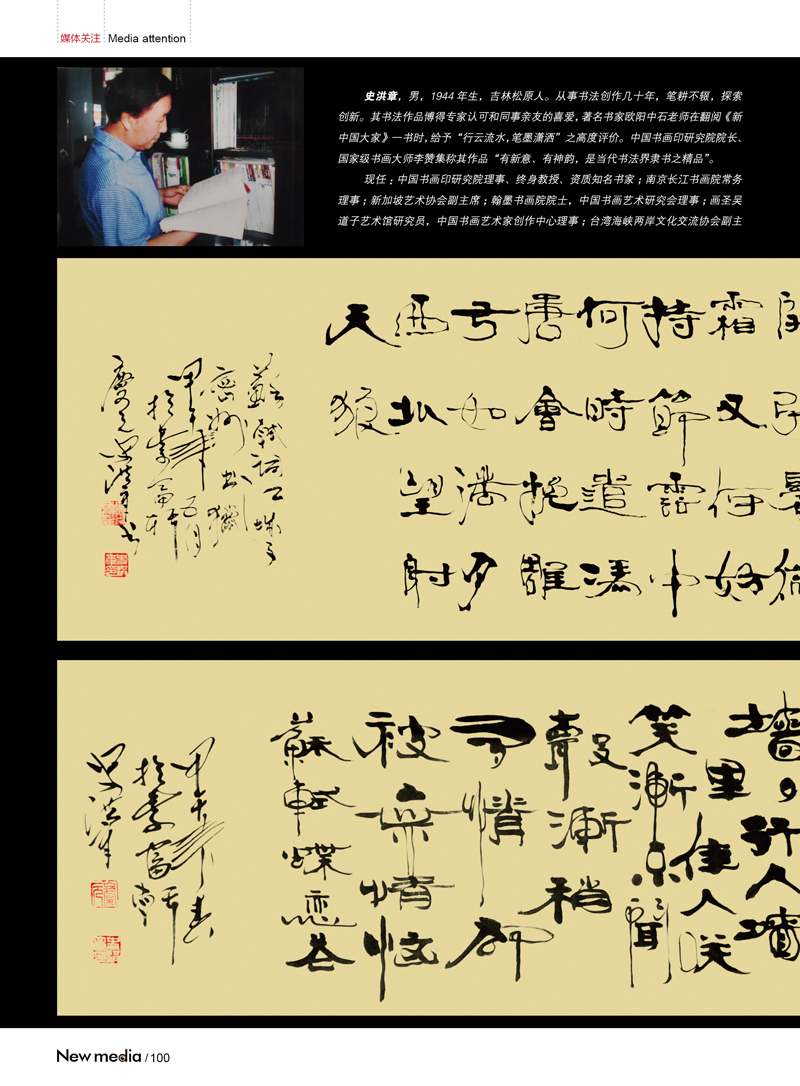 媒体关注 Media attention
史洪章，男，1944年生，吉林松原人。从事书法创作几十年，笔耕不辍，探索
创新。其书法作品博得专家认可和同事亲友的喜爱，著名书家欧阳中石老师在翻阅《新
中国大家》一书时，给予“行云流水，笔墨潇洒”之高度评价。中国书画印研究院院长、
国家级书画大师李赞集称其作品“有新意、有神韵，是当代书法界隶书之精品”。
现任：中国书画印研究院理事、终身教授、资质知名书家；南京长江书画院常务
理事；新加坡艺术协会副主席；翰墨书画院院士，中国书画艺术研究会理事；画圣吴
道子艺术馆研究员，中国书画艺术家创作中心理事；台湾海峡两岸文化交流协会副主
霜又何妨
持節雲中
何時遣馮
唐會挽雕
弓如滿月
西北望射
天狼
蘇軾詞江城子
密州出獵
甲午年五月
史洪章书
墻外行人墻
里佳人笑
笑漸不聞
聲漸稍
多情卻
被無情惱
蘇軾蝶恋花
甲午年春
史洪章
New media / 100